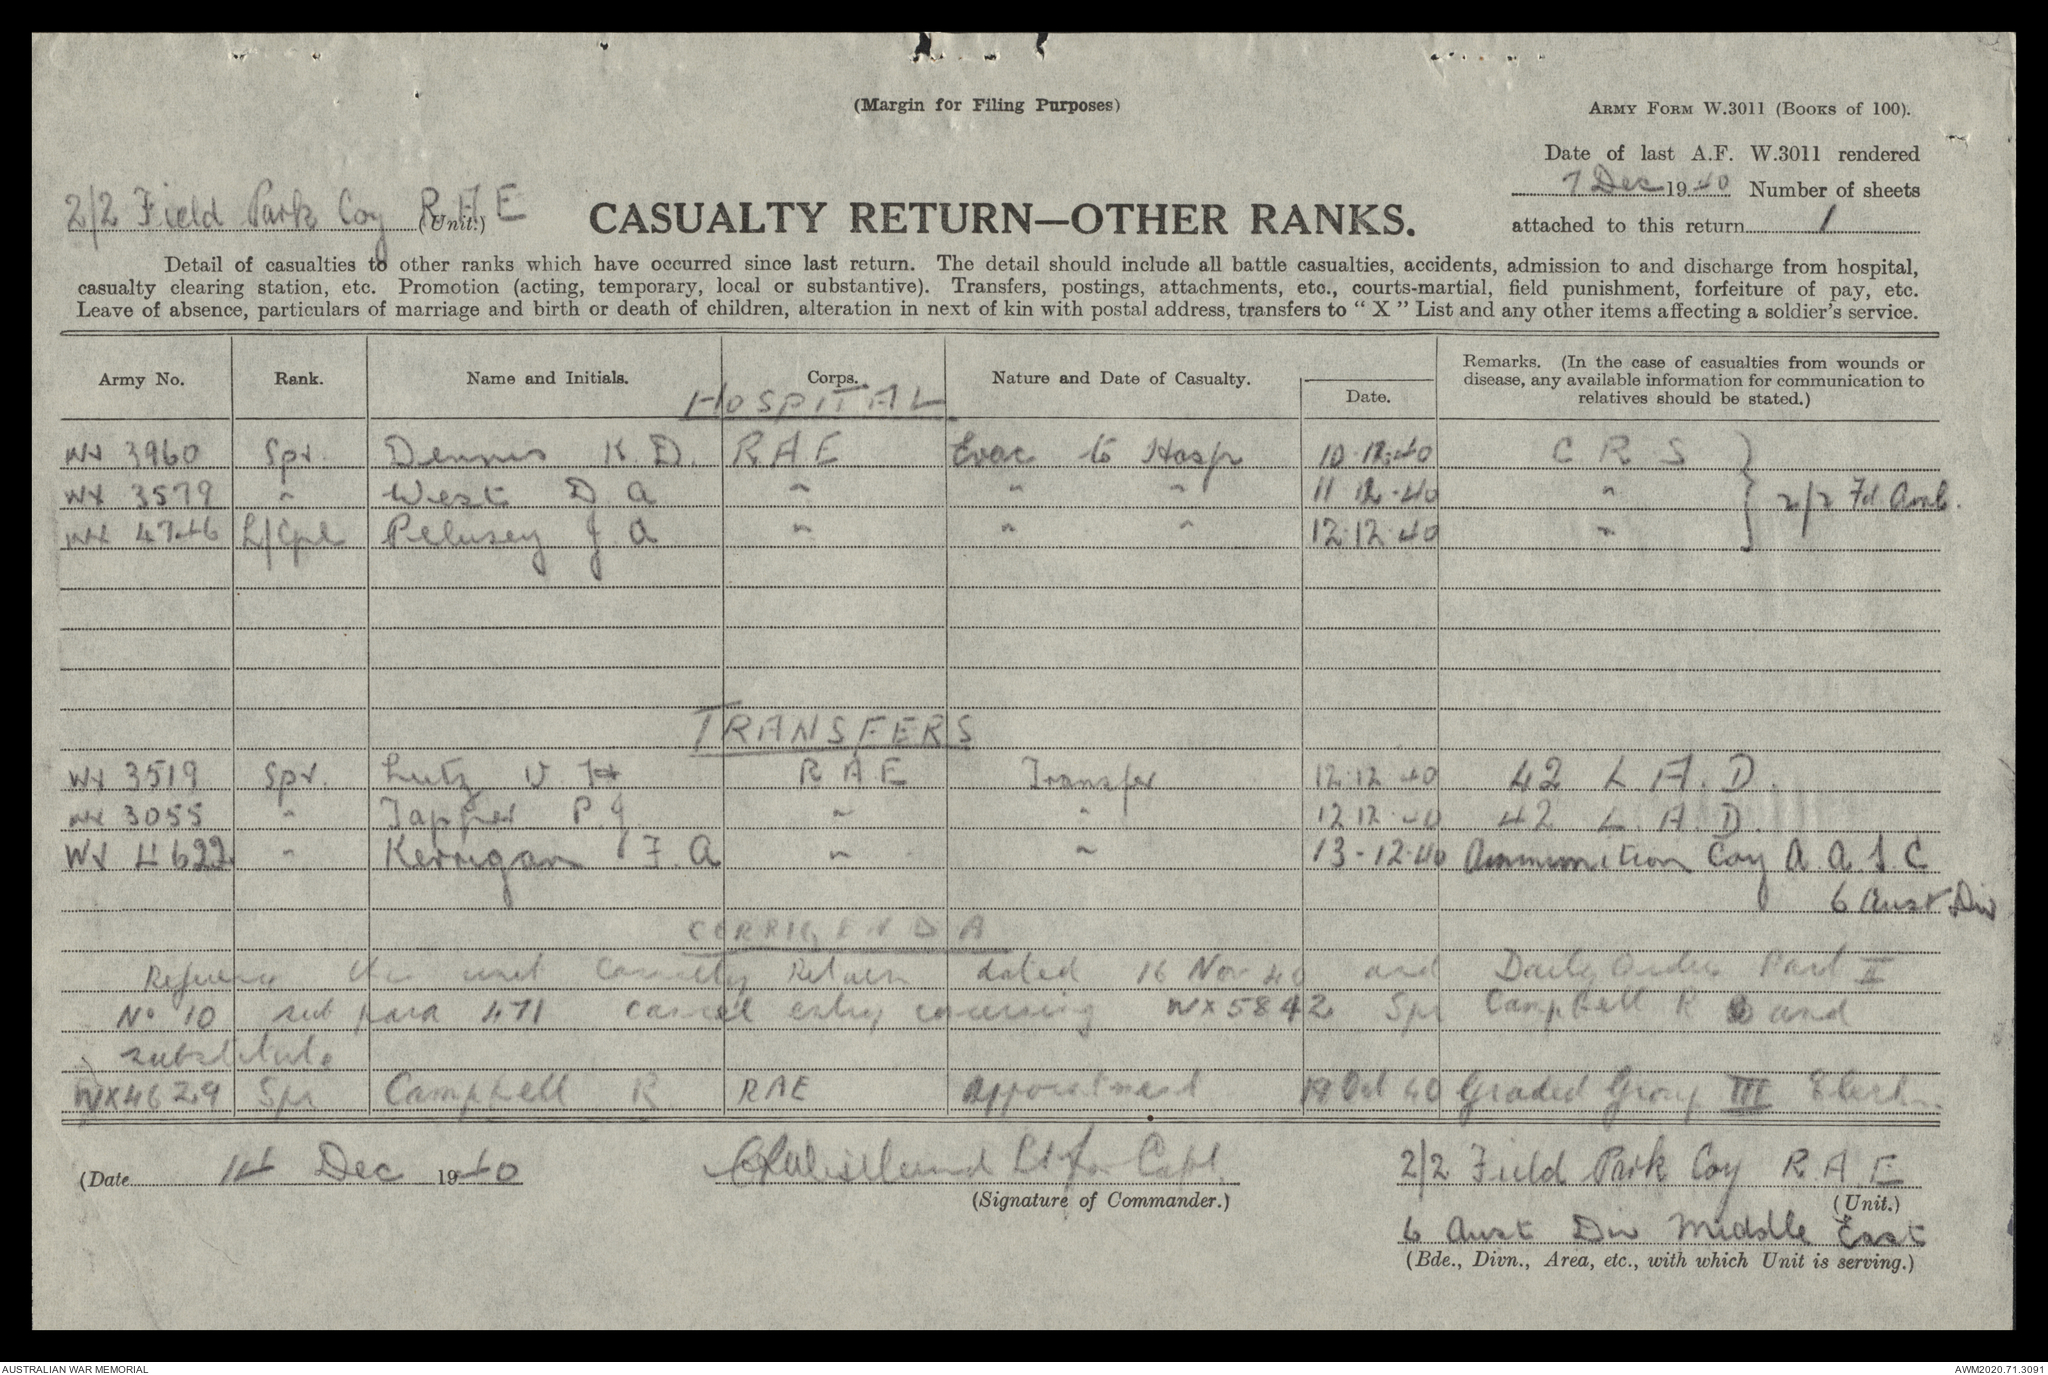 (Margin for Filing Purposes)
ARMY FORM W.3011 (BOOKS of 100).
Date of last A.F. W.3011 rendered
7 Dec 1940 Number of sheets
attached to this return 1
2/2 Field Park Coy R A E (Unit.)
CASUALTY RETURN—OTHER RANKS.
Detail of casualties to other ranks which have occurred since last return. The detail should include all battle casualties, accidents, admission to and discharge from hospital,
casualty clearing station, etc. Promotion (acting, temporary, local or substantive). Transfers, postings, attachments, etc., courts-martial, field punishment, forfeiture of pay, etc.
Leave of absence, particulars of marriage and birth or death of children, alteration in next of kin with postal address, transfers to "X" List and any other items affecting a soldier's service.
Army No. Rank. Name and Initials. Corps. Nature and Date of Casualty. Date. Remarks. (In the case of casualties from wounds or
disease, any available information for communication to
relatives should be stated.)
HOSPITAL
WX 3960 Spr. Dennis K. D. R A E Evac to Hosp 10.12.40 C R S
WX 3579 " West D A " " " 11 12.40 " 2/2 Fd Amb.
WX 4746 L/Cpl Pelusey J A " " " 12.12.40 "
TRANSFERS
WX 3519 Spr. Lutz V H R A E Transfer 12.12.40 42 L. A. D.
WX 3055 " Tapper P. J " " 12 12.40 42 L. A. D.
WX 4622 " Kerrigan F. A " " 13-12.40 Ammunition Coy A. A. S. C
6 Aust Div
CORRIGENDA
Reference this unit Casualty Return dated 16 Nov 40 and Daily Orders Part II
No 10 sub para 471 cancel entry concerning WX5842 Spr Campbell R and
substitute
WX4629 Spr Campbell R RAE Appointment 19 Oct 40 Graded Group III
(Date 14 Dec 1940
Lt for Capt.
(Signature of Commander.)
2/2 Field Park Coy R. A. E
(Unit.)
6 Aust Div Middle East
(Bde., Divn., Area, etc., with which Unit is serving.)
AUSTRALIAN WAR MEMORIAL
AWM2020.71.3091